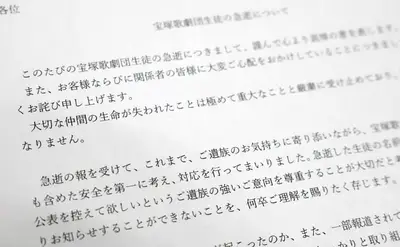 各位
宝塚歌劇団生徒の急逝について
このたびの宝塚歌劇団生徒の急逝につきまして、謹んで心より哀悼の意を表します。
また、お客様ならびに関係者の皆様に大変ご心配をおかけしていることにつきまし
くお詫び申し上げます。
大切な仲間の生命が失われたことは極めて重大なことと厳粛に受け止めており、
なりません。
急逝の報を受けて、これまで、ご遺族のお気持ちに寄り添いながら、宝塚歌
も含めた安全を第一に考え、対応を行ってまいりました。急逝した生徒の名前
公表を控えて欲しいというご遺族の強いご意向を尊重することが大切だと考
りお知らせすることができないことを、何卒ご理解を賜りたく存じます。
起こったのか、また、一部報道されて
かりと取り組